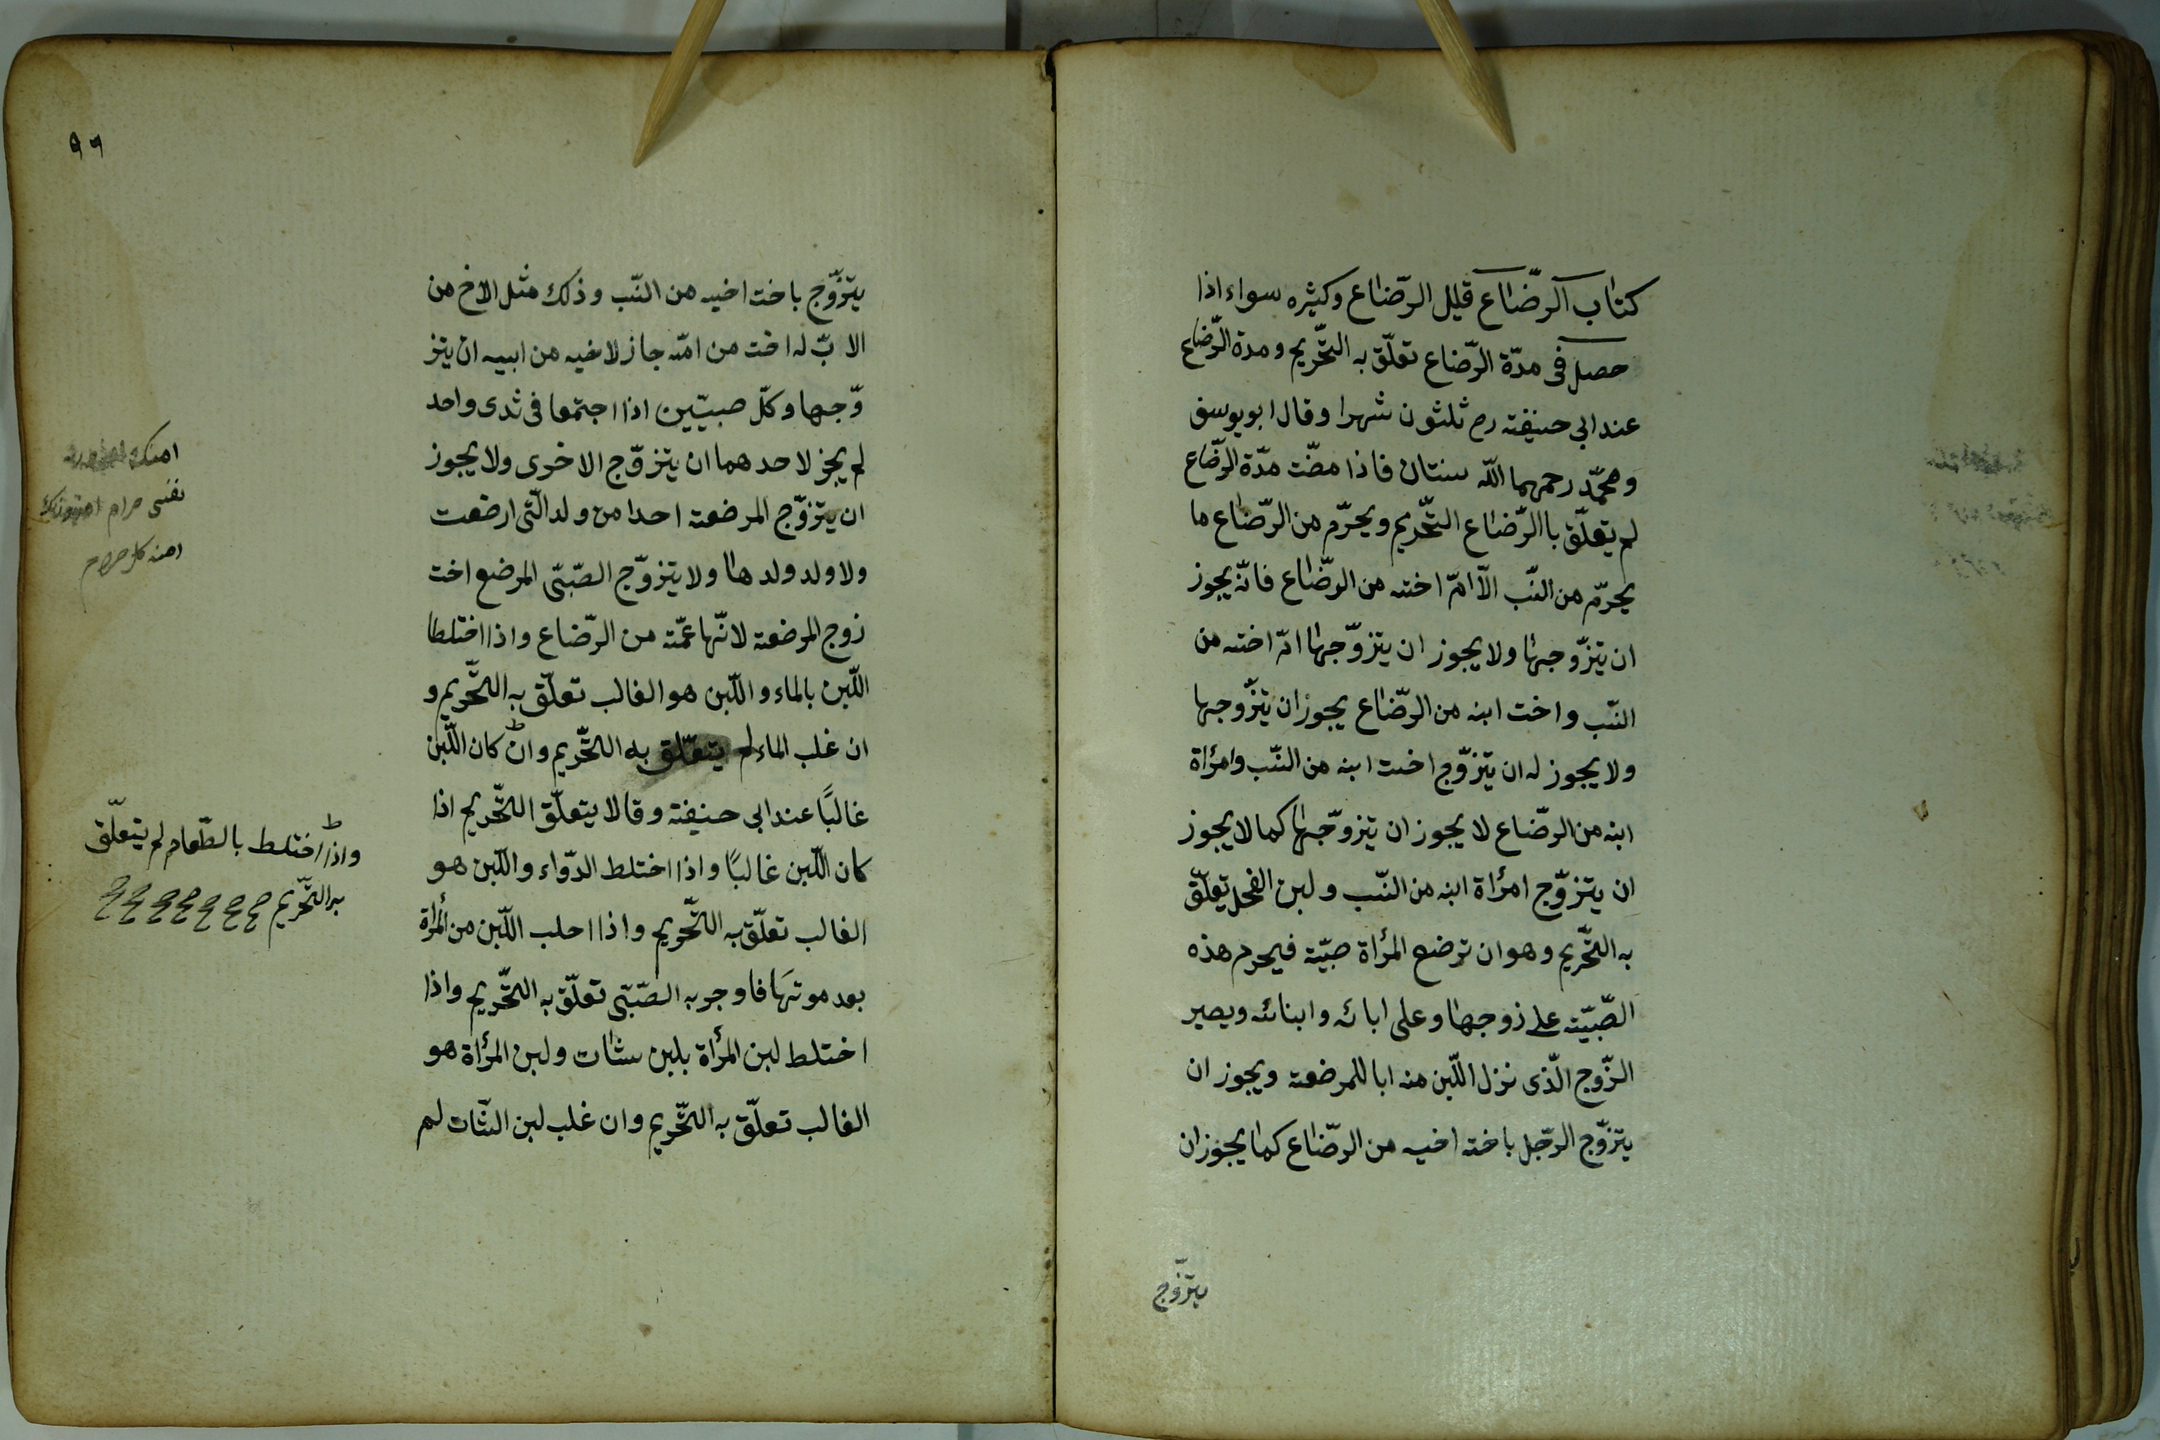 كتاب الرضاع قليل الرّضاع وكثيره سواء اذا
حصل فى مدّة الرّضاع تعلّق به التّحريم ومدة الرّضاع
عند ابي حنيفة رح ثلثون شهرا وقال ابو يوسف
ومحمّد رحمهما اللّه سنتان فاذا مضّت مدّة الرّضاع
لم يتعلّق باالرّضاع التّحريم ويحرّم من الرّضاع ما
يحرّم من النّسب الّا امّ اخته من الرّضاع فانّه يجوز
ان يتزّوجها ولا يجوز ان يتزوّجها امّ اخته من
النّسب واخت ابنه من الرّضاع يجوز ان يتزّوجها
ولا يجوز له ان يتزوّج اخت ابنه من النّسب وامرأة
ابنه من الرّضاع لا يجوز ان يتزوّجها كما لا يجوز
ان يتزوّج امرأة ابنه من النّسب ولبن الفحل يتعلّق
به التّحريم وهو ان ترضع المرأة صبيّة فيحرم هذه
الصّبيّة على زوجها وعلى ابائه وابنائه ويصير
الزّوج الّذى نزل اللّبن منه ابا للمرضعة ويجوز ان
يتزوّج الرّجل باخته اخيه من الرّضاع كما يجوز ان
يتزّوج
٩٦
يتزّوج باخت اخيه من النّسب وذلك مثل الاخ من
الابّ له اخت من امّه جاز لاخيه من ابيه ان يتز
وّجها وكلّ صبيّين اذا اجتمعا فى ثدى واحد
لم يجز لاحدهما ان يتزوّج الاخرى ولا يجوز
ان يتزوّج المرضعة احدا من ولد الّتى ارضعت
ولا ولد ولدها ولا يتزوّج الصّبىّ المرضع اخت
زوج المرضعة لانّها عمّته من الرّضاع واذا اختلطا
اللّبن بالماء واللّبن هو الغالب تعلّق به التّحريم و
ان غلب الماء لم يتعلّق به التّحريم وان كان اللّبن
غالبًا عند ابى حنيفة وقالا يتعلّق التّحريم اذا
كان اللّبن غالبًا واذا اختلط الدّواء واللّبن هو
الغالب تعلّق به التّحريم واذا احلب اللّبن من المرأة
بعد موتها فاوجر به الصّبىّ تعلّق به التّحريم واذا
اختلط لبن المرأة بلبن شات ولبن المرأة هو
الغالب تعلّق به التّحريم وان غلب لبن الشّات لم
نفسى حرام
واذا اختلط بالطّعام لم يتعلّق
به التّحريم